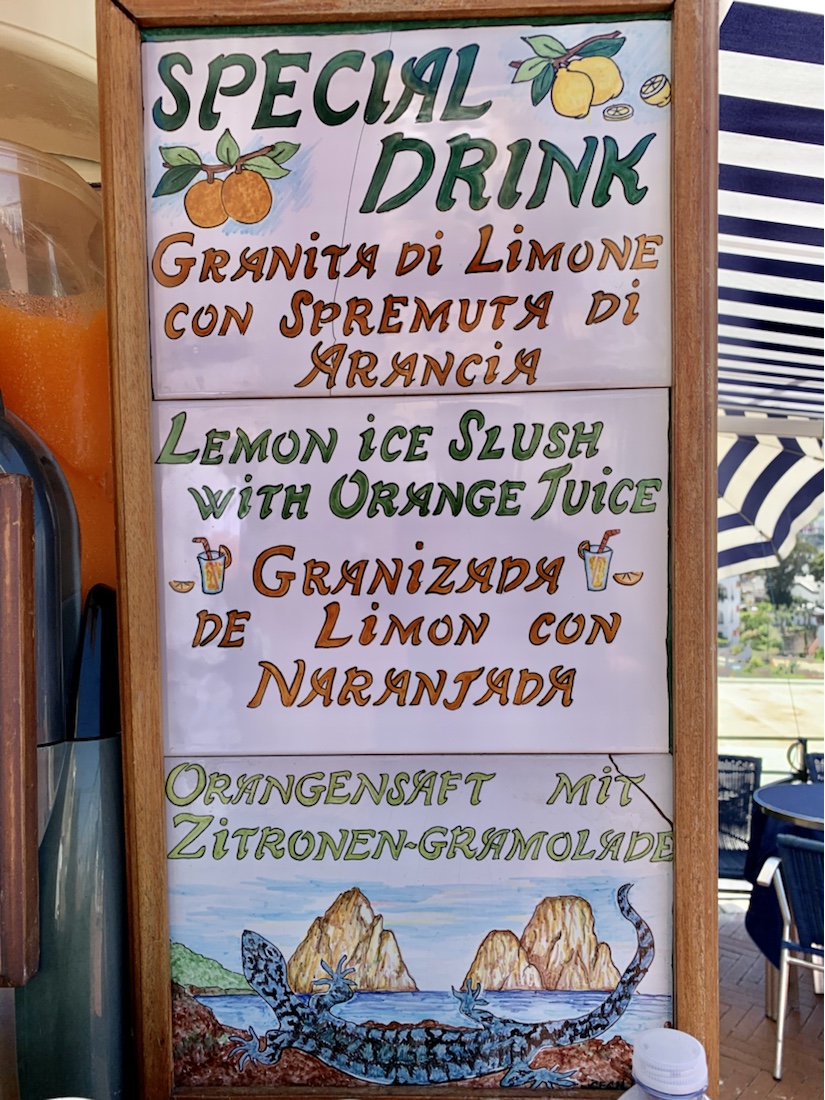 SPECIAL
DRINK
GRANiTA Di LiMONE
CON SPREMUTA Di
ARANCiA
LEMON iCE SLUSH
WiTH ORANGE JUiCE
GRANiZADA
DE LiMON CON
NARANJADA
ORANGENSAFT MiT
ZiTRONEN-GRAMOLADE